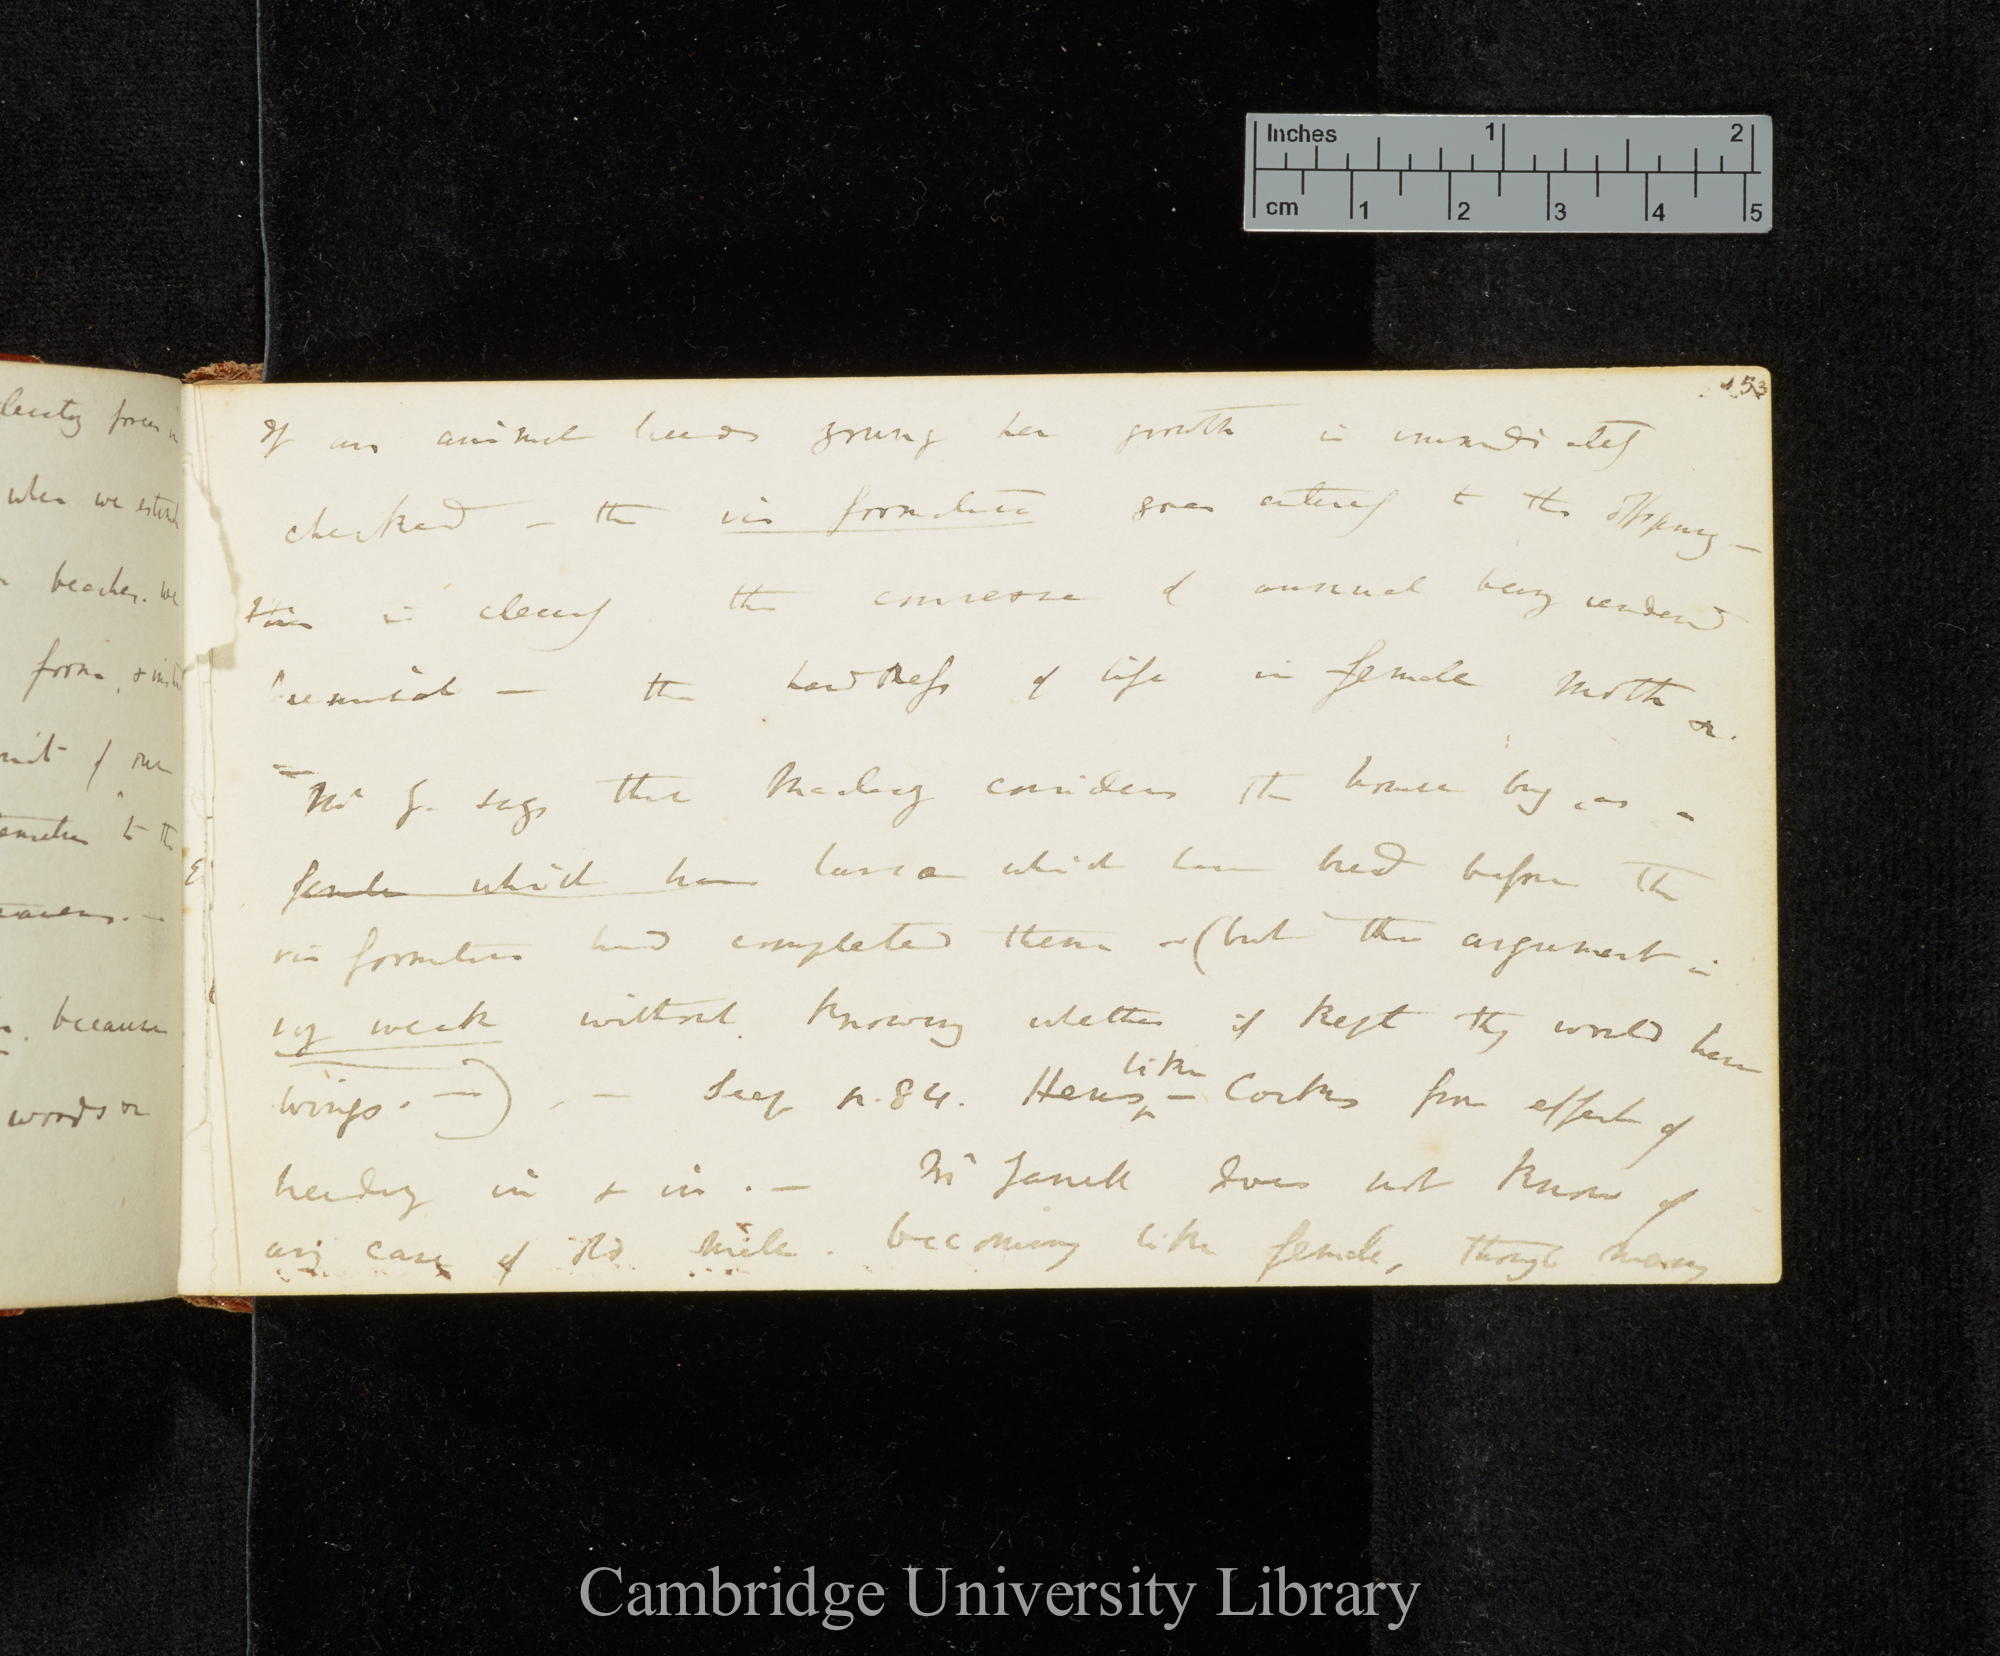 Inches 1 2
cm 1 2 3 4 5
153
If an animal breeds young her growth is immediately
checked – the vis formativa goes entirely to the offspring –
this is clearly the converse of annual being rendered
biennial – the hardness of life in female moth &c.
– Mr Y. says that Macleay considers the house bug, as a
female which have larva which have bred before the
vis formativa had completed them –(but this argument is
very weak without knowing whether if kept they would have
wings. –) . – See p. 84.
like
Hens – Cocks from effect of
breeding in & in. – Mr Yarrell does not know of
any case of old male. becoming like female, though many
forces in
when we
beaches. we
forms, &
of our
to the
because
woods or
Cambridge University Library